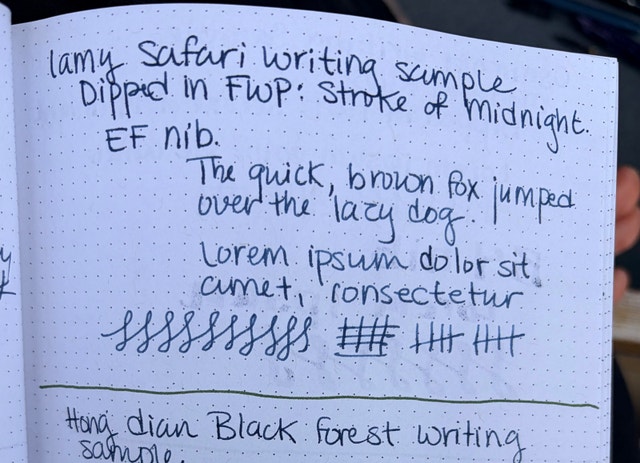 lamy Safari writing sample
Dipped in FWP: Stroke of Midnight.
EF nib.
The quick, brown fox jumped
over the lazy dog.
Lorem ipsum dolor sit
amet, consectetur
Hong dian Black Forest writing
sample.